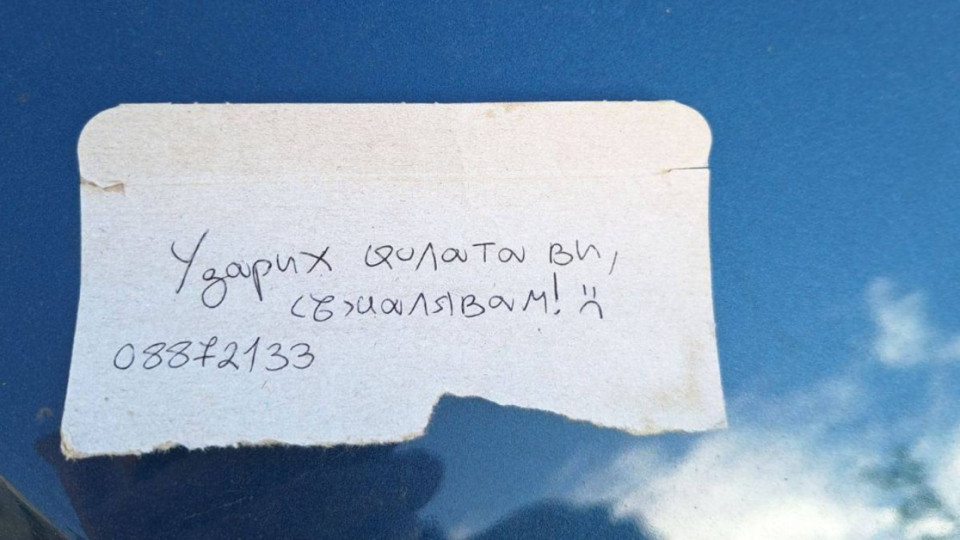 Ударих колата ви,
съжалявам! :(
08872133